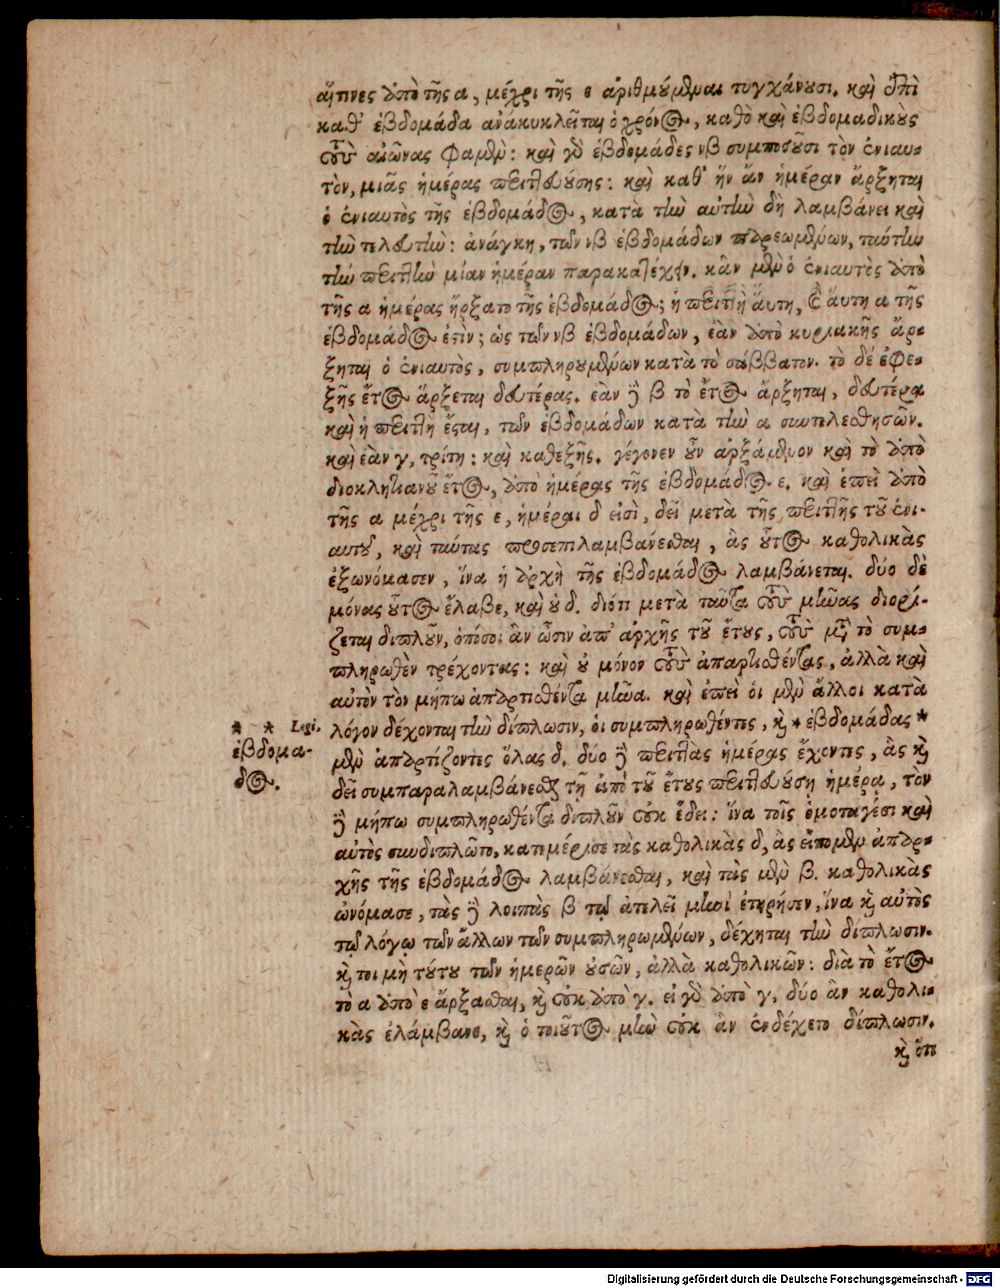 αἵτινες ἀπὸ τῆς α, μέχρι τῆς ε ἀριθμούμεναι τυγχάνουσι. καὶ ἐπὶ
καθ' ἑβδομάδα ἀνακυκλεῖται ὁ χρόνος, καθὸ καὶ ἑβδομαδικοὺς
τοὺς αἰῶνας φαμέν: καὶ γὰρ ἑβδομάδες νβ συμποσοῦσι τὸν ἐνιαυ-
τὸν, μιᾶς ἡμέρας περιττευούσης: καὶ καθ' ἥν ἄν ἡμέραν ἄρξηται
ὁ ἐνιαυτὸς τῆς ἑβδομάδος, κατὰ τὴν αὐτὴν δὴ λαμβάνει καὶ
τὴν τελευτήν: ἀνάγκη, τῶν νβ ἑβδομάδων παρεωμένων, ταύτην
τὴν περιττὴν μίαν ἡμέραν παρακατέχειν. κἂν μὲν ὁ ἐνιαυτὸς ἀπὸ
τῆς α ἡμέρας ἤρξατο τῆς ἑβδομάδος; ἡ περιττὴ αὕτη, αὕτη α τῆς
ἑβδομάδος ἐστὶν; ὡς τῶν νβ ἑβδομάδων, ἐὰν ἀπὸ κυριακῆς ἄρ-
ξηται ὁ ἐνιαυτὸς, συμπληρουμένων κατὰ τὸ σάββατον. τὸ δὲ ἐφε-
ξῆς ἔτος ἄρξεται δευτέρας. ἐὰν δὲ β τὸ ἔτος ἄρξηται, δευτέρα
καὶ ἡ περιττὴ ἔσται, τῶν ἑβδομάδων κατὰ τὴν α συντελεσθησῶν.
καὶ ἐὰν γ, τρίτη: καὶ καθεξῆς. γέγονεν οὖν ἀρξάμενον καὶ τὸ ἀπὸ
διοκλητιανοῦ ἔτος, ἀπὸ ἡμέρας τῆς ἑβδομάδος ε. καὶ ἐπεὶ ἀπὸ
τῆς α μέχρι τῆς ε, ἡμέραι δ εἰσὶ, δεῖ μετὰ τῆς περιττῆς τοῦ ἐνι-
αυτοῦ, καὶ ταύτας προσεπιλαμβάνεσθαι, ἃς οὗτος καθολικὰς
ἐξωνόμασεν, ἵνα ἡ ἀρχὴ τῆς ἑβδομάδος λαμβάνεται. δύο δὲ
μόνας οὗτος ἔλαβε, καὶ οὐ δ. διότι μετὰ ταῦτα τοὺς μῆνας διορί-
ζεται διπλοῦν, ὁπόσοι ἂν ὦσιν ἀπ' ἀρχῆς τοῦ ἔτους, τοὺς μετὰ τὸ συμ-
πληρωθὲν τρέχοντας: καὶ οὐ μόνον τοὺς ἀπαρτισθέντας, ἀλλὰ καὶ
αὐτὸν τὸν μήπω ἀπαρτισθέντα μῆνα. καὶ ἐπεὶ οἱ μὲν ἄλλοι κατὰ
λόγον δέχονται τὴν δίπλωσιν, οἱ συμπληρωθέντες, καὶ * ἑβδομάδας *
* * Legi.
ἑβδομα-
δος.
μὲν ἀπαρτίζοντες ὅλας δ. δύο δὲ περιττὰς ἡμέρας ἔχοντες, ἃς καὶ
δεῖ συμπαραλαμβάνεσθαι τῇ ἀπὸ τοῦ ἔτους περιττευούσῃ ἡμέρᾳ, τὸν
δὲ μήπω συμπληρωθέντα διπλοῦν οὐκ ἔδει: ἵνα τοῖς ὁμοταγέσι καὶ
αὐτὸς συνδιπλῶτο, κατεμέρισε τὰς καθολικὰς δ, ἃς εἴπομεν ἀπ' ἀρ-
χῆς τῆς ἑβδομάδος λαμβάνεσθαι, καὶ τὰς μὲν β. καθολικὰς
ὠνόμασε, τὰς δὲ λοιπὰς β τῷ ἀτελεῖ μηνὶ ἐτήρησεν, ἵνα καὶ αὐτὸς
τῷ λόγῳ τῶν ἄλλων τῶν συμπληρωμένων, δέχηται τὴν δίπλωσιν.
καὶ τοι μὴ τούτου τῶν ἡμερῶν οὐσῶν, ἀλλὰ καθολικῶν: διὰ τὸ ἔτος
τὸ α ἀπὸ ε ἄρξασθαι, καὶ οὐκ ἀπὸ γ. εἰ γὰρ ἀπὸ γ, δύο ἂν καθολι-
κὰς ἐλάμβανε, καὶ ὁ τοιοῦτος μὴν οὐκ ἂν ἐνδέχετο δίπλωσιν.
καὶ ὅτι
Digitalisierung gefördert durch die Deutsche Forschungsgemeinschaft - DFG